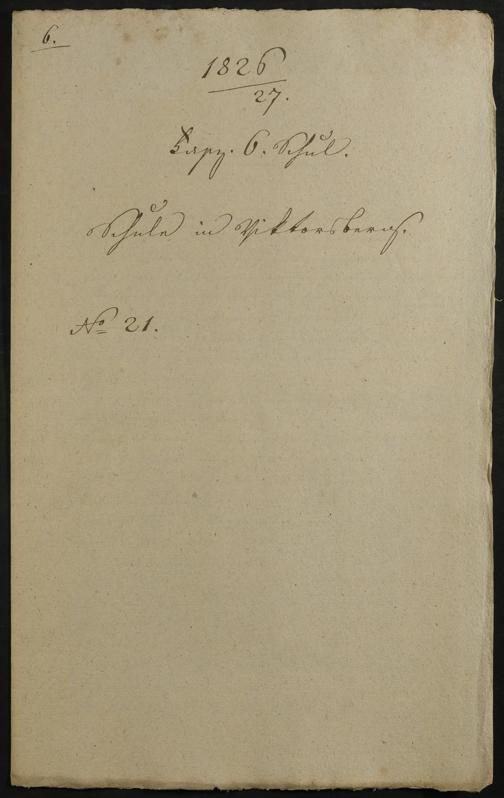 6.
1826
27.
Fasz. 6. Schul.
Schule in Viktorsberg.
No 21.